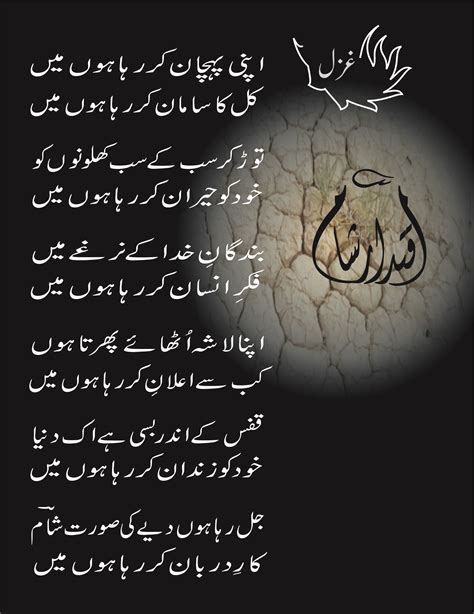 غزل
اپنی پہچان کر رہا ہوں میں
کل کا سامان کر رہا ہوں میں
توڑ کر سب کے سب کھلونوں کو
خود کو حیران کر رہا ہوں میں
اقتدار شام
بندگانِ خدا کے نرغے میں
فکرِ انسان کر رہا ہوں میں
اپنا لاشہ اُٹھائے پھرتا ہوں
کب سے اعلان کر رہا ہوں میں
قفس کے اندر بسی ہے اک دنیا
خود کو زندان کر رہا ہوں میں
جل رہا ہوں دیے کی صورت شامؔ
کارِ دربان کر رہا ہوں میں